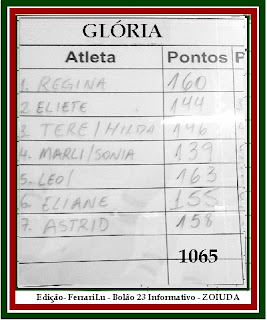 GLÓRIA
Atleta Pontos P
1. REGINA 160
2 ELIETE 144
3 TERE/HILDA 146
4. MARLI/SONIA 139
5. LEO/ 163
6 ELIANE 155
7. ASTRID 158
1065
Edição- FerrariLu - Bolão 23 Informativo - ZOIUDA